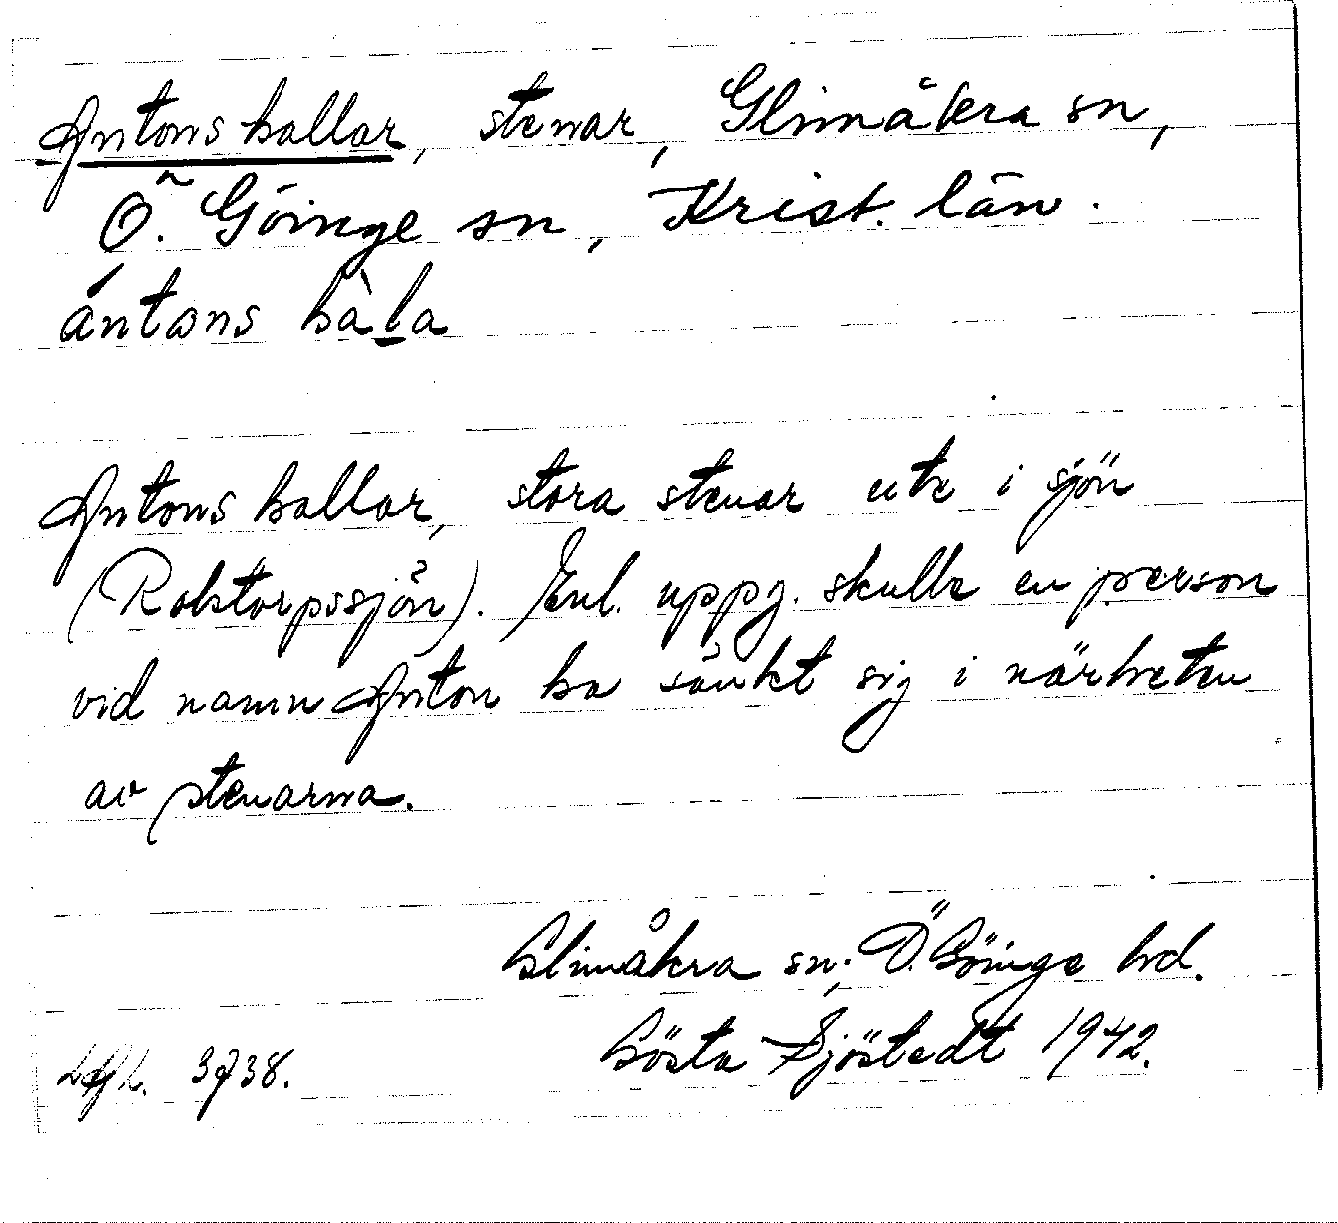 Antons hallar, stenar, Glimåkra sn,
Ö. Göinge sn, Krist. län.
ántons hàla
Antons hallar, stora stenar ute i sjön
(Roktorpssjön). Enl. uppg. skulle en person
vid namn Anton ha sänkt sig i närheten
av stenarna.
Glimåkra sn; Ö. Göinge hd.
Gösta Sjöstedt 1942.
3738.